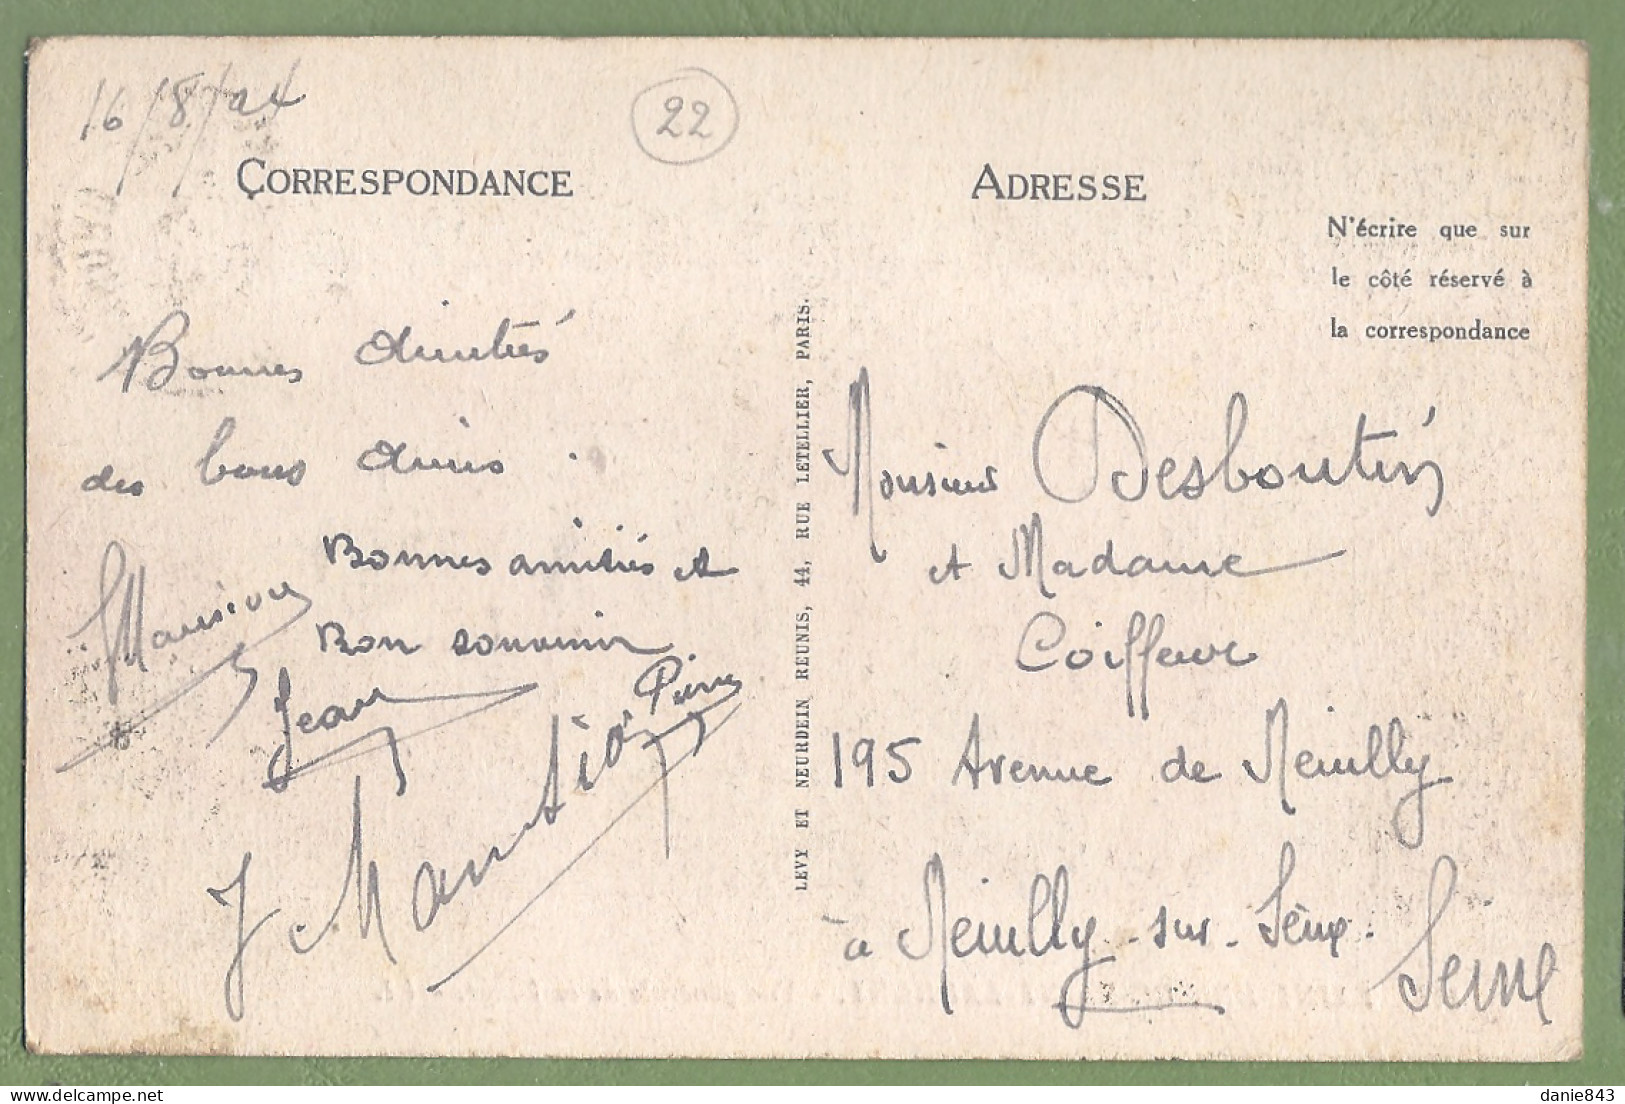 16/8/24
22
CORRESPONDANCE
Bonnes amitiés
des bons amis.
Bonnes amitiés et
Bon souvenir
Jean
Pierre
J.
ADRESSE
N'écrire que sur
le côté réservé à
la correspondance
LEVY ET NEURDEIN REUNIS, 44, RUE LETELLIER, PARIS.
Monsieur Desboutin
et Madame
Coiffeur
195 Avenue de Neuilly
à Neuilly-sur-Seine.
Seine
danie843